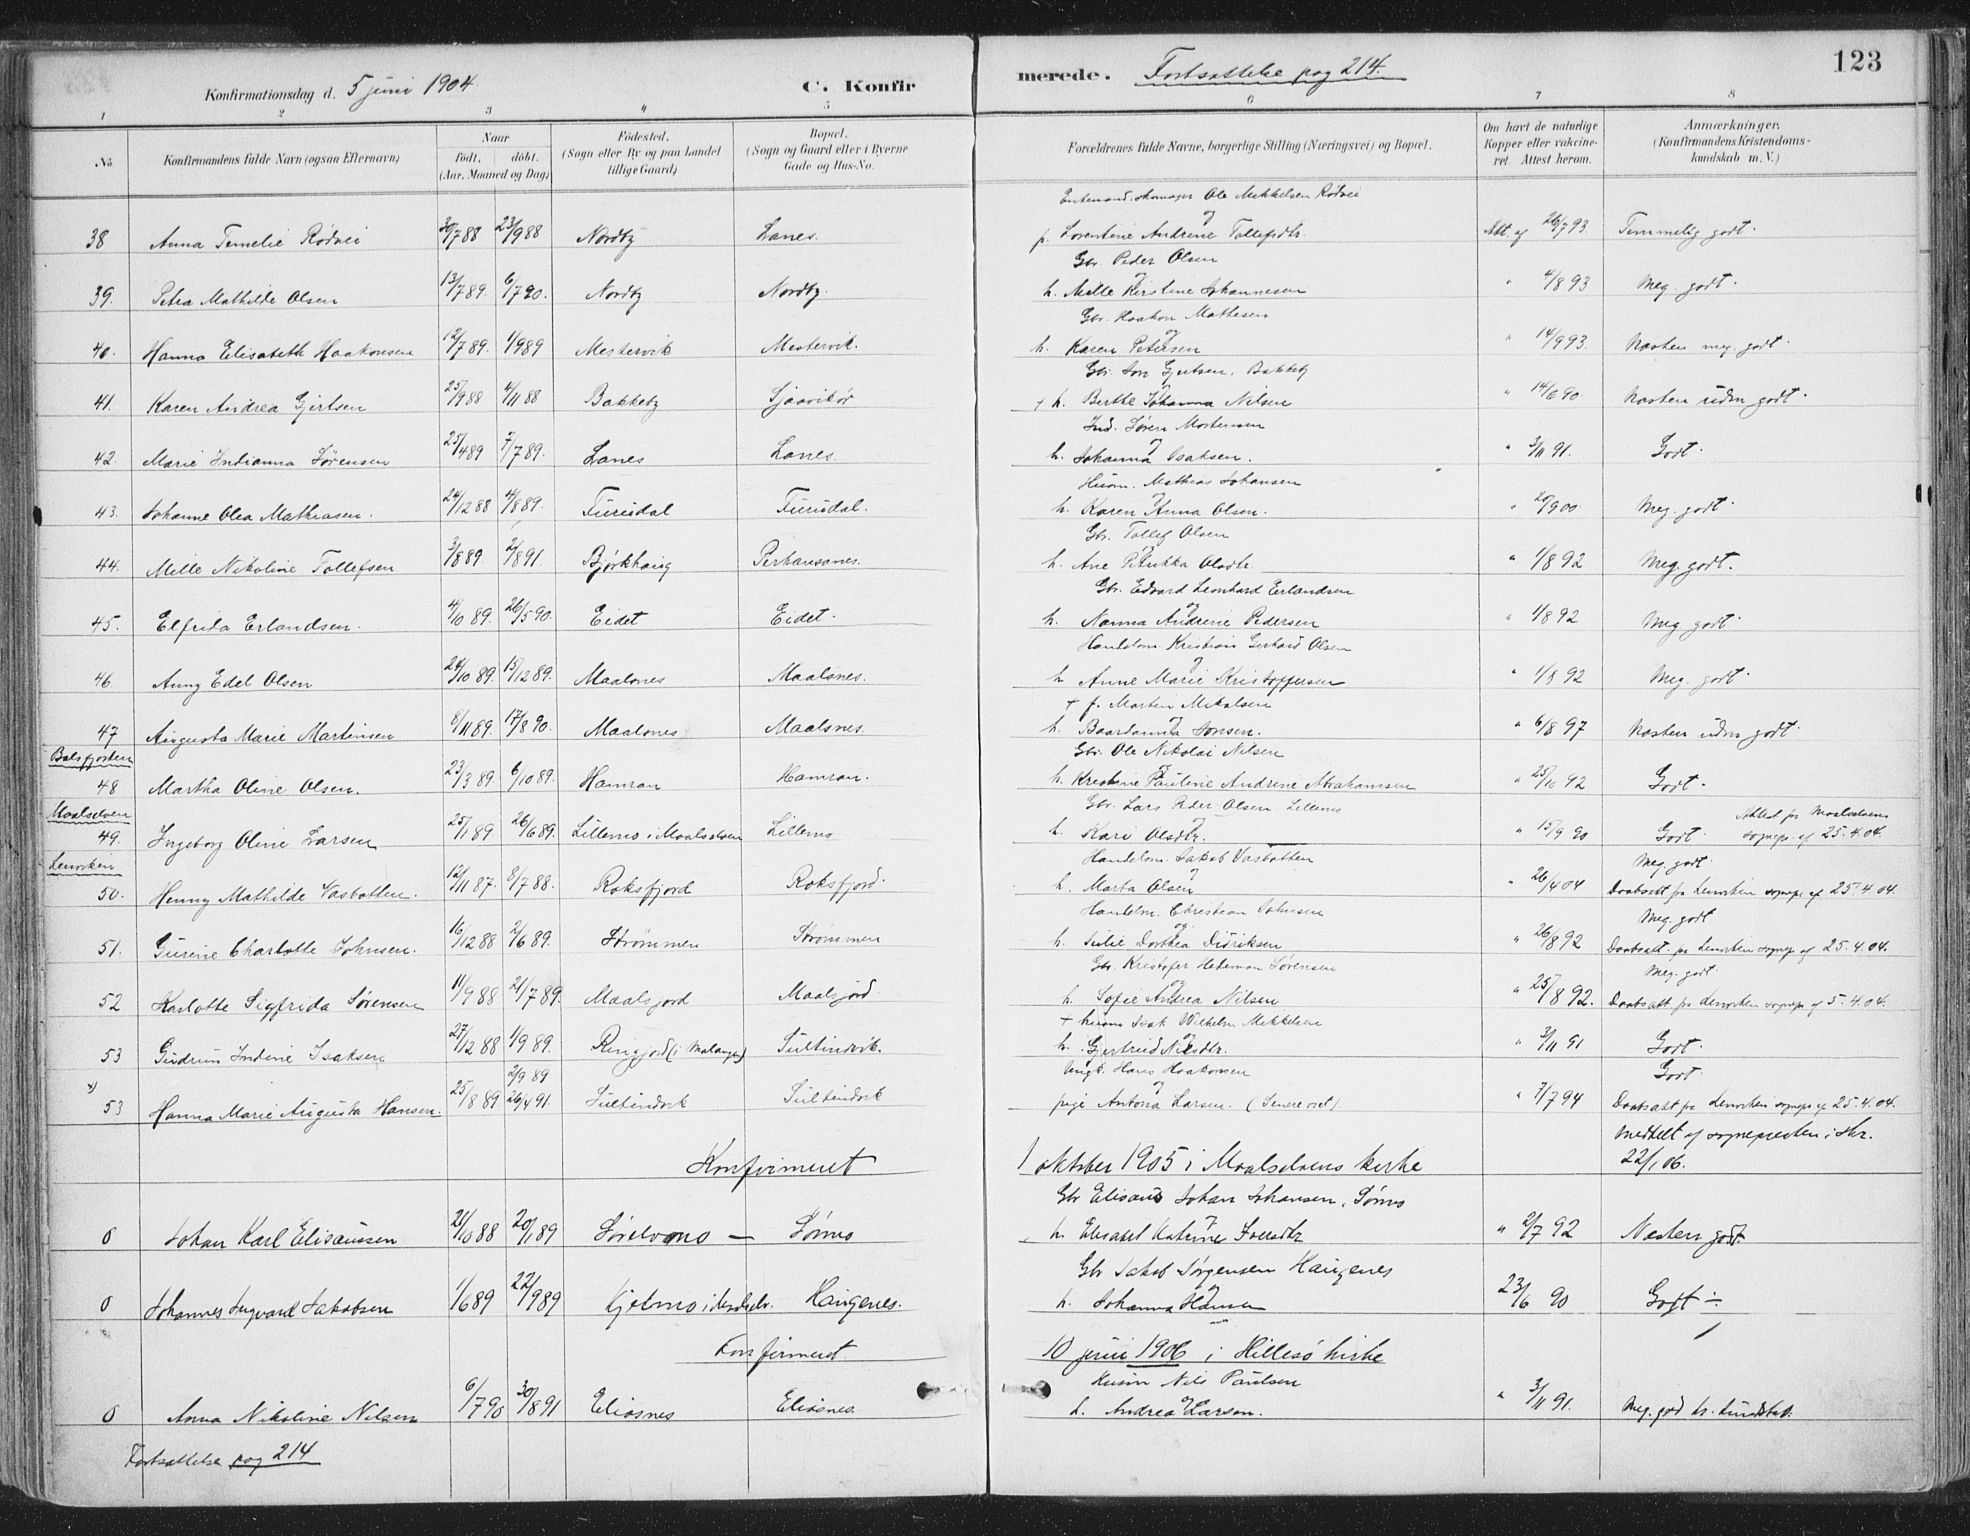 123
Konfirmationsdag d. 5 juni 1904 C. Konfir merede. Fortsættelse pag 214.
1 2 3 4 5 6 7 8
No. Konfirmandens fulde Navn (ogsaa Efternavn) Naar födt. döbt. (Aar, Maaned og Dag) Födested. (Sogn eller By og paa Landet tillige Gaard) Bopæl. (Sogn og Gaard eller i Byerne Gade og Hus-No. Forældrenes fulde Navne, borgerlige Stilling (Næringsvei) og Bopæl. Om havt de naturlige Kopper eller vakcineret. Attest herom. Anmærkninger. (Konfirmandens Kristendomskundskab m. V.)
Ole Mikkelsen Rødvei
38 Anna Temelie Rødvei 30/7 88 23/9 88 Nordby Lanes. og Lorentine Andrine Tollefsdtr. Att. af 26/7 93. Temmelig godt.
Gbr. Peder Olsen
39. Petra Mathilde Olsen 13/7 89. 6/7 90. Nordby Nordby. og h. Mille Kirstine Johannesen " 4/8 93 Meg. godt.
Gbr. Haakon Mathesen
40. Hanna Elisabeth Haakonsen 12/7 89. 1/9 89 Mestervik Mestervik. og h. Karen Petersen " 14/9 93. Næsten meg. godt.
Gbr. Jon Gjertsen, Bakkeby
41. Karen Andrea Gjertsen 25/9 88 4/11 88 Bakkeby Sjaavikør + h. Berthe Johanna Nilsen " 14/6 90. Næsten udm godt.
Ind. Søren Mortensen
42. Marie Indianna Sørensen 25/4 89 7/7 89. Lanes Lanes. og h. Johanna Isaksen. " 3/11 91. Godt.
Husm. Mathias Johansen
43. Johanne Olea Mathiasen. 24/12 88 4/8 89. Furudal Furudal. og h. Karen Anna Olsen. " 20/9 00. Meg. godt.
Gbr. Tollef Olsen
44. Mille Nikoline Tollefsen 3/8 89. 2/8 91. Bjørkhaug Perhansanes. og h. Ane Petrikka Olsdtr. " 1/8 92 Meg. godt.
Gbr. Edvard Leonhard Erlandsen
45. Elfrida Erlandsen. 4/10 89. 26/5 90. Eidet Eidet. og h. Nanna Andrine Pedersen " 1/8 92 Meg. godt.
Handelsm. Kristian Gerhard Olsen
46. Anny Edel Olsen 24/10 89. 15/12 89. Maalsnes Maalsnes. og h. Anne Marie Kristoffersen " 1/8 92 Meg. godt.
+ f. Morten Mikalsen
47 Augusta Marie Martinsen 8/11 89. 17/8 90. Maalsnes Maalsnes. og h. Baardanna Jonsen. " 6/8 97 Næsten udm godt.
Balsfjorden Gbr. Ole Nikolai Nilsen
48 Martha Oline Olsen. 23/3 89. 6/10 89. Hamran Hamran. og h. Kristine Pauline Andrine Abrahamsen " 25/10 92 Godt.
Maalselven Gbr. Lars Peder Olsen, Lillemo Attest fra Maalselvens
49. Ingeborg Oline Larsen 25/1 89. 26/6 89. Lillemo i Maalselven Lillemo h. Kari Olsdtr. " 15/9 90 Godt. sognepr. af 25.4.04.
Lenviken Handelsm. Jakob Vasbotten Meg. godt.
50. Henny Mathilde Vasbotten. 12/11 87. 8/7 88. Roksfjord Roksfjord. og h. Marta Olsen " 26/4 04 Daabsatt fra Lenviken sognepr af 25.4.04.
Handelsm. Christian Johnsen Meg. godt
51. Gurine Charlotte Johnsen. 16/12 88 2/6 89. Strømmen Strømmen og h. Julie Dorthea Didriksen " 26/8 92 Daabsatt. fra Lenviken sognepr af 25.4.04.
Gbr. Kristofer Heteman Sørensen Meg. godt.
52 Karlotte Sigfrida Sørensen 11/9 88 21/7 89. Maalsjord Maalsjord. og h. Sofie Andrea Nilsen " 25/8 92. Daabsatt fra Lenviken sognepr af 5.4.04.
+ husm Isak Wilhelm Mikkelsen
53 Gudrun Indine Isaksen 27/12 88 1/9 89. Ringjord (i Malangen) Sultindvik. og h. Gjertrud Nilsdtr. " 3/11 91 Godt.
2/9 89 Ungk. Hans Haakonsen Godt.
x) 53 Hanna Marie Augusta Hansen. 25/8 89 26/4 91. Sultindvik Sultindvik og pige Antona Larsen. (Senere viet) " 7/7 94 Daabsatt fra Lenviken sognepr af 25.4.04.
Konfirmeret 1 oktober 1905 i Maalselvens kirke Meddelt af sognepresten i skr. 22/1 06.
Gbr Elisæus Johan Johansen, Sørmo
0 Johan Karl Elisæussen 21/10 88 20/1 89 Sørelvmo — Sørmo og h. Elisabet Katrine Iversdtr " 2/7 92 Næsten godt.
Gbr Jakob Jørgensen Haugenes
0 Johannes Ingvard Jakobsen 1/6 89 22/9 89 Kjelmo i Maalselv. Haugenes. og h. Johanna Hansen 23/6 90 Godt ÷
Konfirmeret 10 juni 1906 i Hillesø kirke
Husm Nils Paulsen
0 Anna Nikoline Nilsen 6/7 90 30/8 91 Eliasnes Eliasnes. og h. Andrea Larsen. " 3/11 91. Meg. god kr. kundskab.
Fortsættelse pag 214